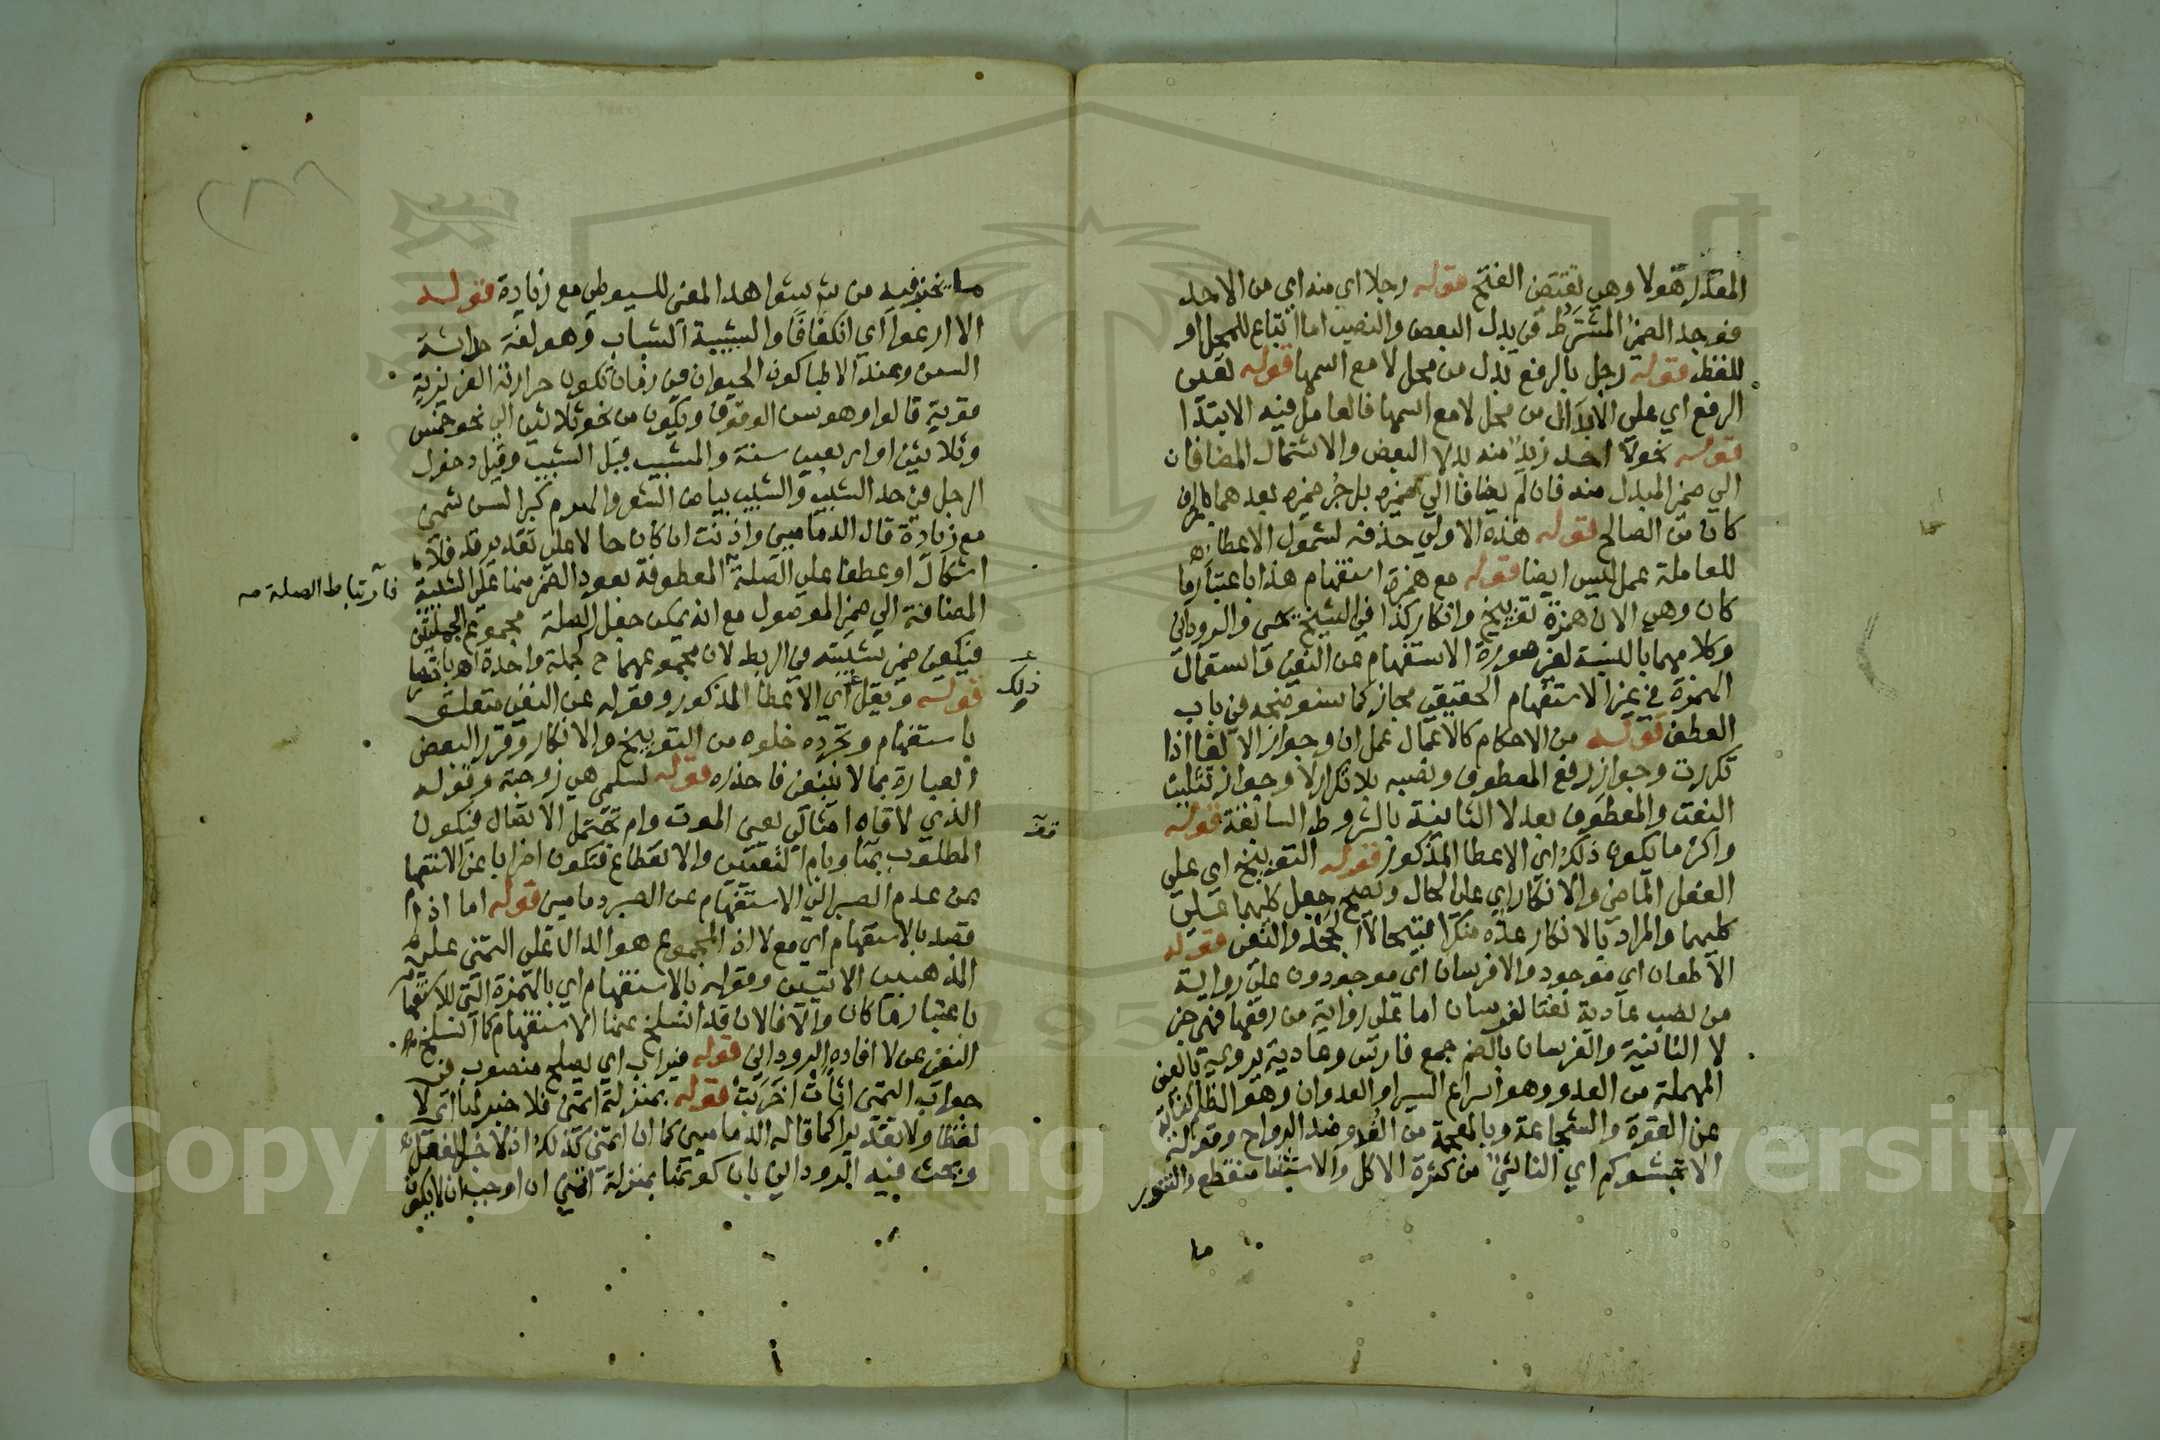 المقدر هولا وهي تقتضي الفتح قوله رجلا اي منه اي من الاحد
فوجد الضمير المشترط في بدل البعض والنصب اما اتباع للمحل او
للفظ قوله رجل بالرفع بدل من محل لا مع اسمها قوله تعين
الرفع اي على الابدال من محل لا مع اسمها فالعامل فيه الابتدا
قوله نحو لا احد زيد منه بدلا البعض والاشتمال المضافان
الي ضمير المبدل منه فان لم يضافا الي ضميره بل جر ضميره بعدهما
كان من الصالح قوله هذه الاولي حذفه لشمول الاعطا
للعاملة عمل ليس ايضا قوله مع همزة استفهام هذا باعتبار ما
كان وهي الان همزة توبيخ وانكار كذا في الشيخ يحيى والروداني
وكلامهما بالنسبة لغير صورة الاستفهام عن النفي واستعمال
الهمزة في غير الاستفهام الحقيقي مجاز كما سنوضحه في باب
العطف قوله من الاحكام كالاعمال عمل ان وجواز الالغا اذا
تكررت وجواز رفع المعطوف ونصبه بلا تكرار لا وجواز تثليث
النعت والمعطوف بعد لا الثانية بالشروط السابقة قوله
واكثر ما يكون ذلك اي الاعطا المذكور قوله التوبيخ اي على
الفعل الماضي والانكار اي على الحال ويصح جعل كليهما على
كليهما والمراد بالانكار عده منكرا قبيحا لا الجحد والنفي قوله
الا طعان اي موجود والا فرسان اي موجودون على رواية
من نصب عادية نعتا لفرسان اما على رواية من رفعها فهي خبر
لا الثانية والفرسان بالضم جمع فارس وعادية يروي بالعين
المهملة من العدو وهو اسراع السير او العدوان وهو الظلم كناية
عن القوة والشجاعة وبالمعجمة من الغدو ضد الرواح وقوله
الا تجشوكم اي الناشي من كثرة الاكل والاستثنا منقطع والتنور
ما
ما يخبز فيه من شواهد المغني للسيوطي مع زيادة قوله
الا ارعوا اي انكفافا والشبيبة الشباب وهو لغة حداثة
السن وعند الاطبا كون الحيوان في زمان تكون حرارته الغريزية
قوية قالوا وهو سن الوقوف ويكون من نحو ثلاثين الي نحو خمس
وثلاثين او اربعين سنة والمشيب قيل الشيب وقيل دخول
الرجل في حد الشيب والشيب بياض الشعر والهرم كبر السن شمني
مع زيادة قال الدماميني واذنت ان كان حالا على تقدير قد فلا
اشكال او عطفا على الصلة المعطوفة بعود الضمير منها على الشبيبة
المضافة الي ضمير الموصول مع انه يمكن جعل الصلة مجموع الجملتين
فيكفي ضمير شبيبته في الربط لان مجموعهما ح كجملة واحدة اهـ
قوله ويقل اي الاعطا المذكور وقوله عن النفي متعلق
باستفهام وتجرده خلوه من التوبيخ والانكار وقرر البعض
العبارة بما لا ينبغي فاحذره قوله لسلمى هي زوجته وقوله
الذي لاقاه امثالي يعني الموت وام تحتمل الاتصال فيكون
المطلوب بها وبام التعيين والانقطاع فتكون اضرابا عن الاستفهام
عن عدم الصبر الي الاستفهام عن الصبر دماميني قوله اما اذا
قصد بالاستفهام اي مع لا اذ المجموع هو الدال على التمني على
المذهبين الاتيين وقوله بالاستفهام اي بالهمزة التي للاستفهام
باعتبار ما كان والا فالان قد انسلخ عنها الاستفهام كما انسلخ
النفي عن لا افاده الروداني قوله فيراب اي يصلح منصوب في
جواب التمني اثات اخربت قوله بمنزلة اتمني فلا خبر لها اي لا
لفظا ولا تقديرا كما قاله الدماميني كما ان اتمني كذلك اذ لا خبر للفعل
وبحث فيه الروداني بان كونها بمنزلة اتمني ان اوجب ان لا يكون
فارتباط الصلة صـ
ذلك
قف